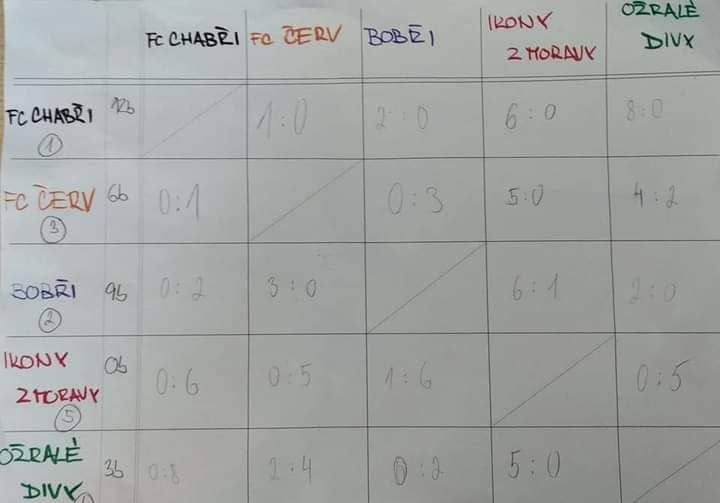 FC CHABŘI FC ČERV BOBŘI IKONY Z MORAVY OŽRALÉ DIVY
FC CHABŘI 12b 1:0 2:0 6:0 8:0
1
FC ČERV 6b 0:1 0:3 5:0 4:2
3
BOBŘI 9b 0:2 3:0 6:1 2:0
2
IKONY 0b 0:6 0:5 1:6 0:5
Z MORAVY
5
OŽRALÉ 3b 0:8 2:4 0:2 5:0
DIVY